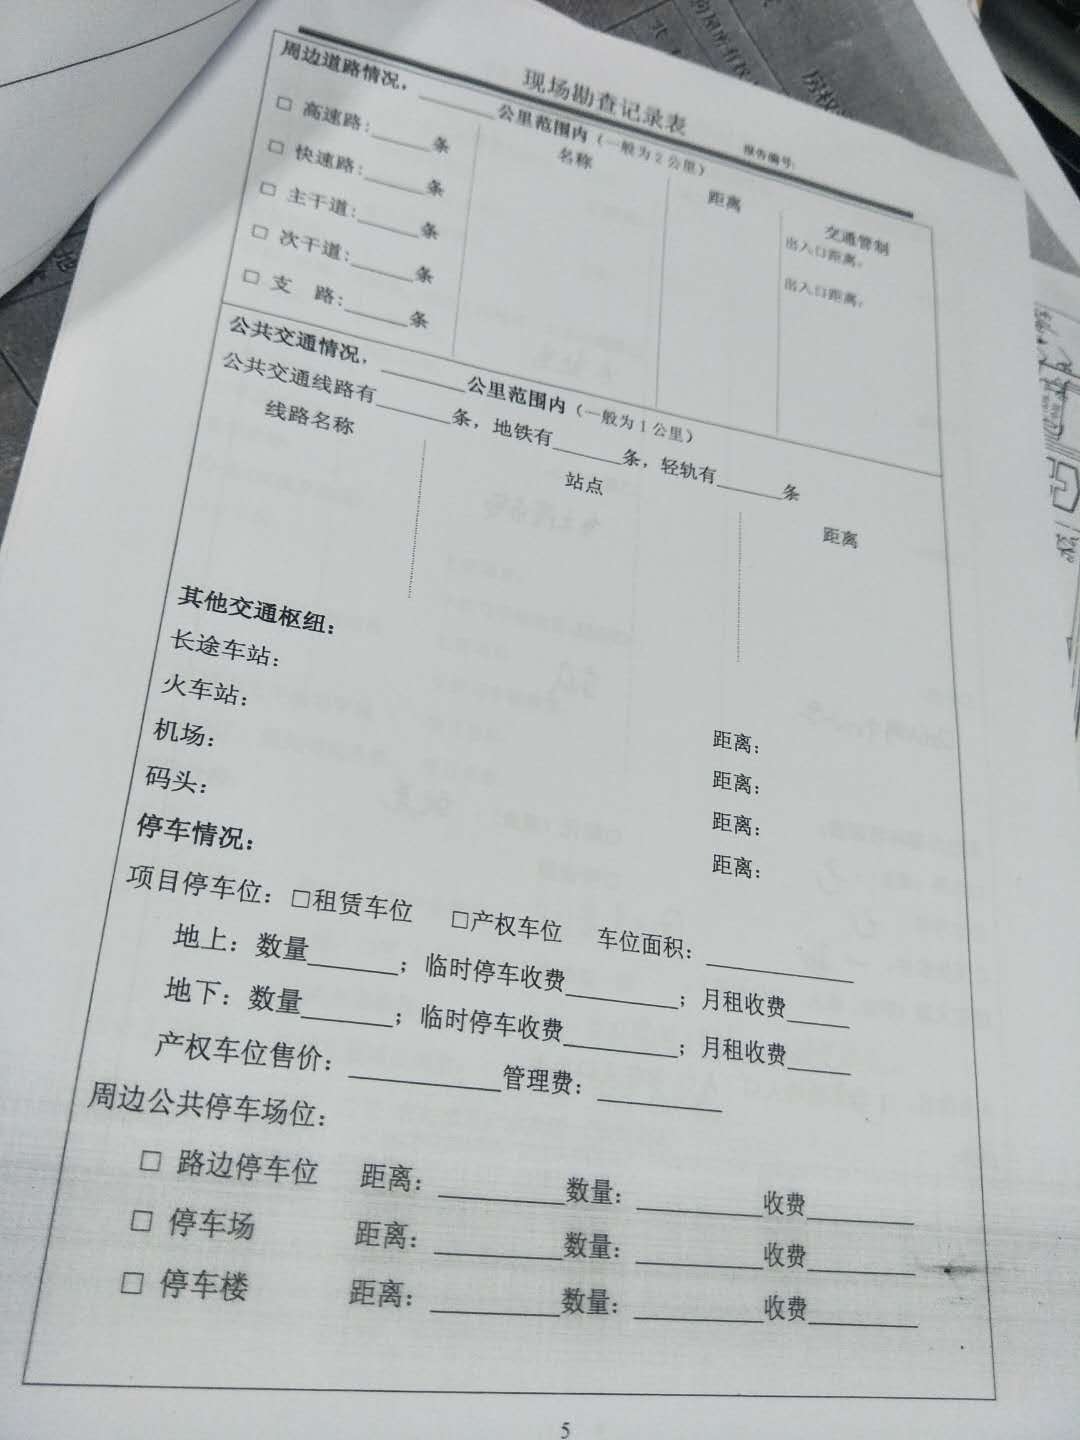 现场勘查记录表
报告编号:
周边道路情况，______公里范围内（一般为2公里）
名称 距离 交通管制
□ 高速路:______条 出入口距离:
□ 快速路:______条 出入口距离:
□ 主干道:______条
□ 次干道:______条
□ 支 路:______条
公共交通情况，______公里范围内（一般为1公里）
公共交通线路有______条，地铁有______条，轻轨有______条
线路名称 站点 距离
其他交通枢纽：
长途车站： 距离：
火车站： 距离：
机场： 距离：
码头： 距离：
停车情况：
项目停车位：□租赁车位 □产权车位 车位面积：____________
地上：数量______；临时停车收费________；月租收费____
地下：数量______；临时停车收费________；月租收费____
产权车位售价：__________管理费：________
周边公共停车场位：
□ 路边停车位 距离：________数量：________收费_______
□ 停车场 距离：________数量：________收费_______
□ 停车楼 距离：________数量：________收费_______
5